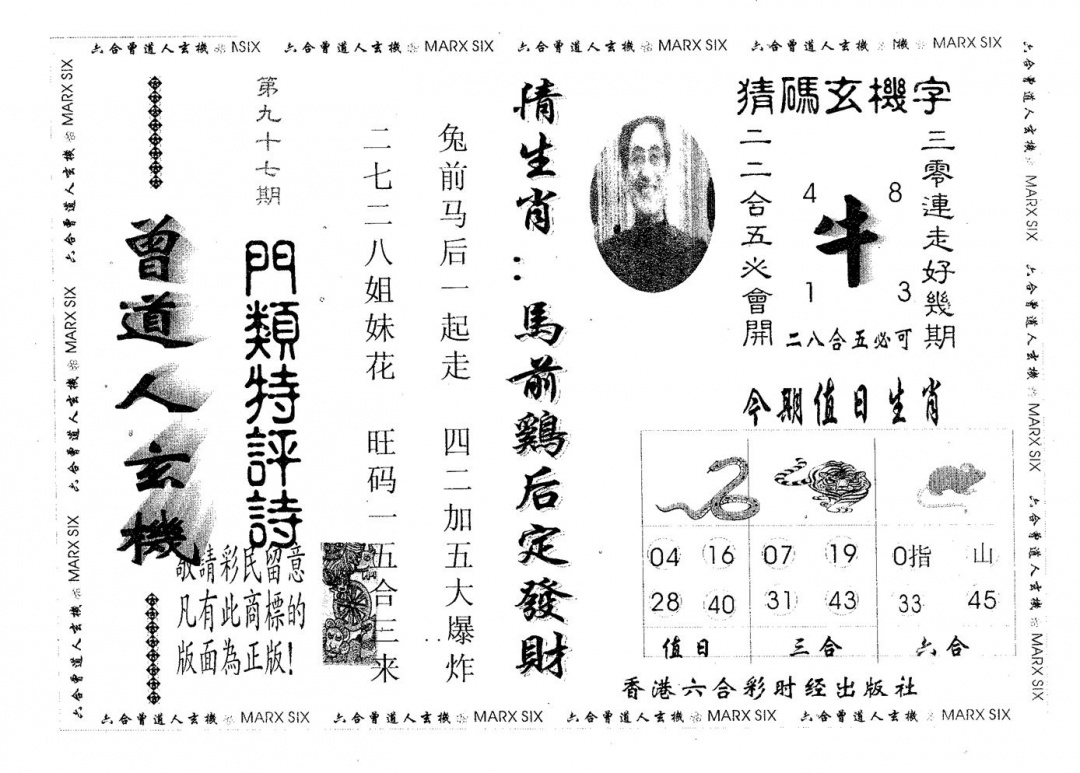 六合曾道人玄機 MARX SIX
六合曾道人玄機 MARX SIX
六合曾道人玄機 MARX SIX
第九十七期
曾道人玄機
門類特評詩
敬請彩民留意
凡有此商標的
版面為正版!
兔前马后一起走 四二加五大爆炸
二七二八姐妹花 旺码一五合三来
猜生肖:馬前鷄后定發財
猜碼玄機字
三零連走好幾期
二二合五必會開
4 8
牛
1 3
二八合五必可
今期值日生肖
04 16 07 19
28 40 31 43 33 45
值日 三合 六合
香港六合彩时经出版社
六合曾道人玄機 MARX SIX
六合曾道人玄機 MARX SIX
六合曾道人玄機 MARX SIX
六合曾道人玄機 MARX SIX
六合曾道人玄機 MARX SIX
六合曾道人玄機 MARX SIX
六合曾道人玄機 MARX SIX
六合曾道人玄機 MARX SIX
六合曾道人玄機 MARX SIX